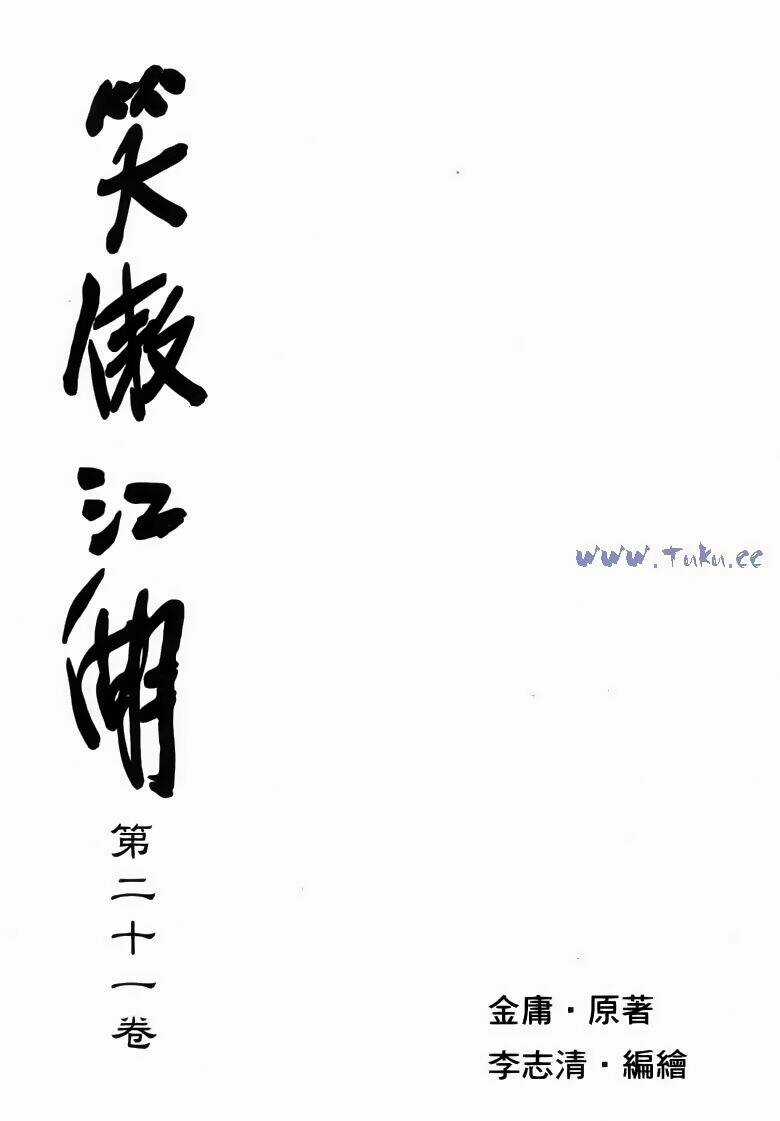 笑傲江湖
第二十一卷
www.Tuku.cc
金庸·原著
李志清·編繪